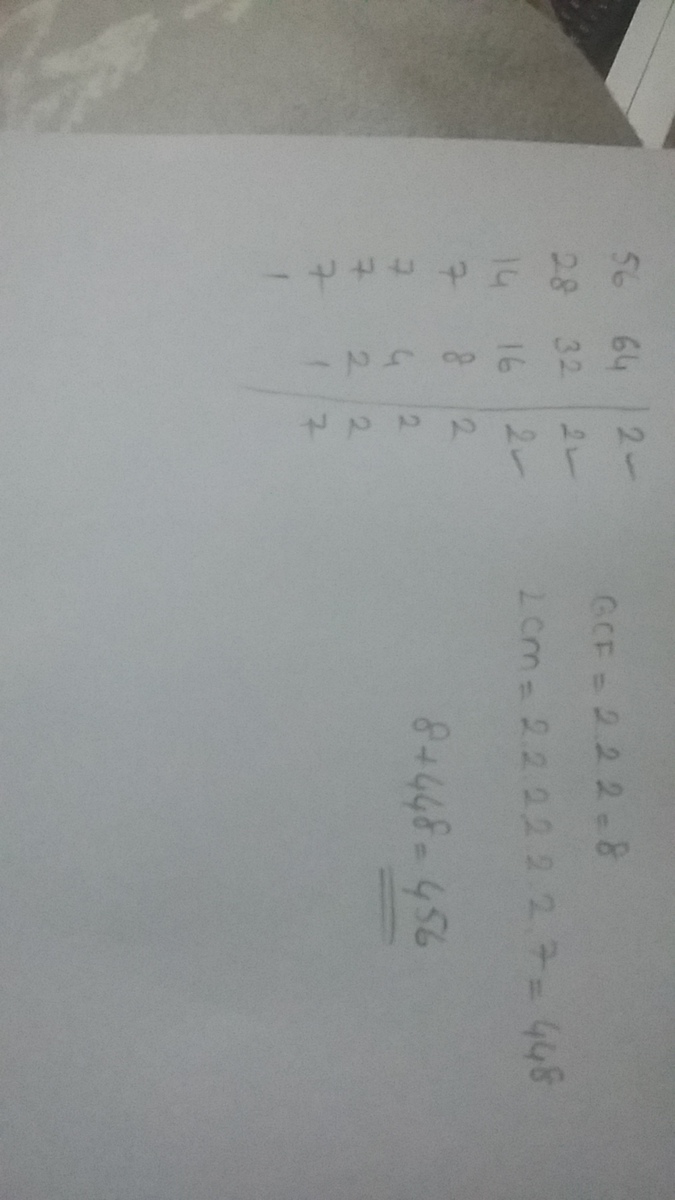 56 64 2 GCF = 2 2 2 = 8
28 32 2
14 16 2 LCM = 2.2.2.2.2.2.7 = 448
7 8 2
7 4 2 8 + 448 = 456
7 2 2
7 1 7
1